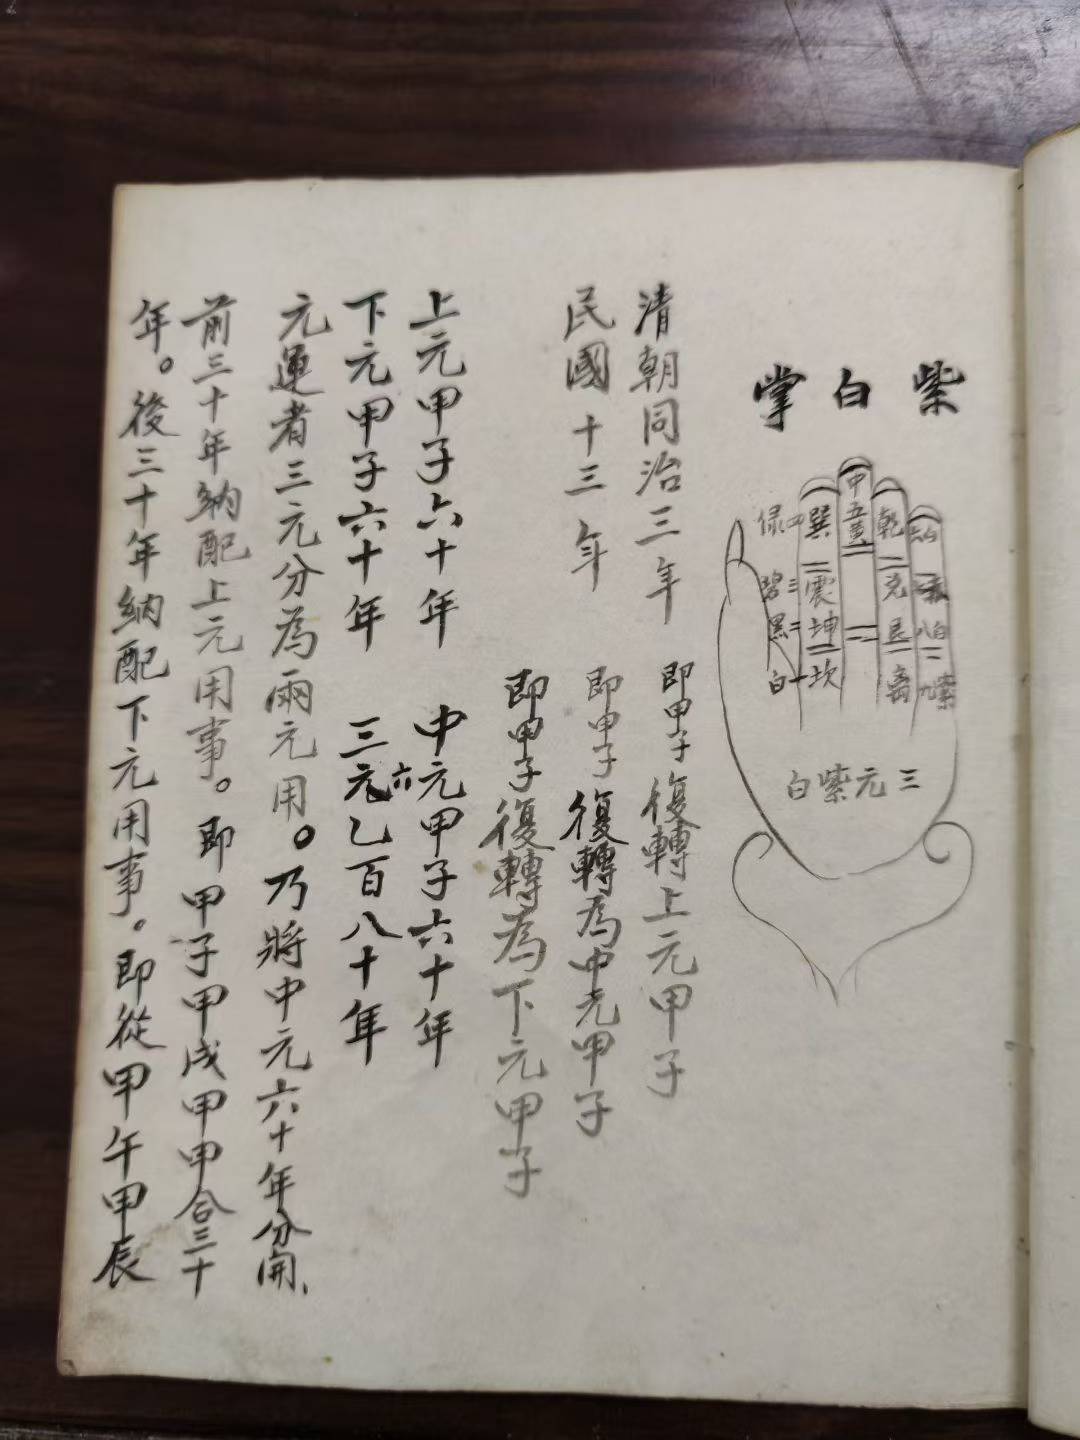 紫白掌
中五黄
乾
六白
兑
艮
八白
離
九紫
巽
四
绿
震
三
碧
坤
二
黑
坎
一
白
三元紫白
清朝同治三年 即甲子復轉上元甲子
民國十三年 即甲子復轉為中元甲子
即甲子復轉為下元甲子
上元甲子六十年 中元甲子六十年
下元甲子六十年 三元六乙百八十年
元運者三元分為兩元用。乃將中元六十年分開、
前三十年納配上元用事。即甲子甲戌甲申合三十
年。後三十年納配下元用事。即從甲午甲辰